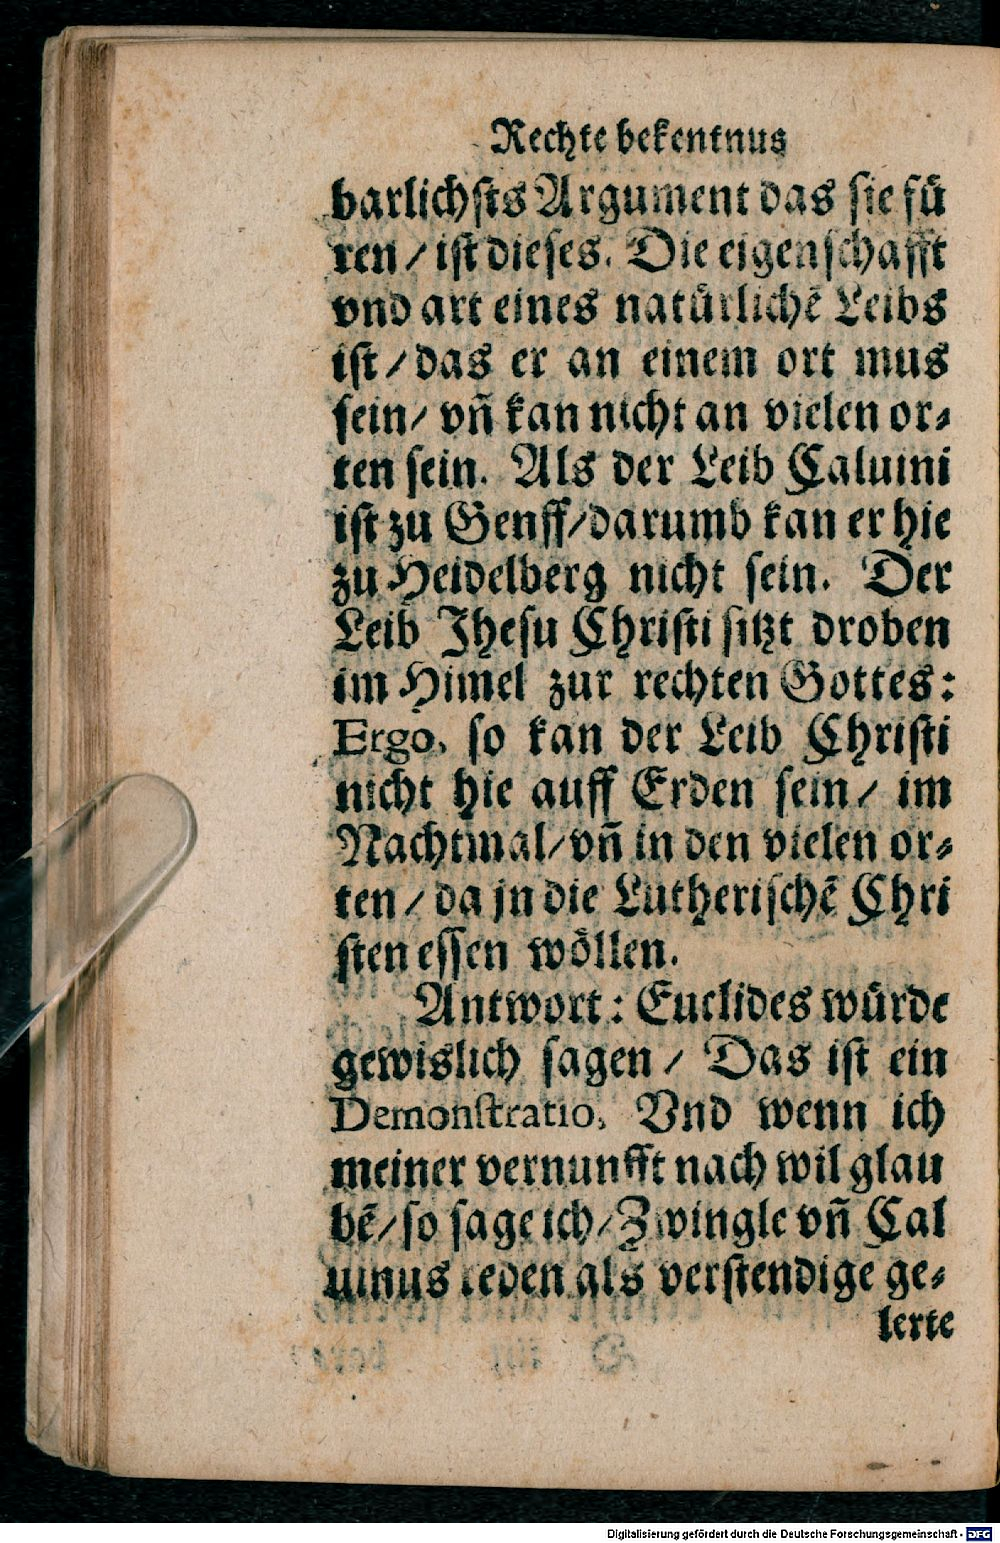 Rechte bekentnus
barlichsts Argument das sie fuͤ
ren / ist dieses. Die eigenschafft
vnd art eines natuͤrlichē Leibs
ist / das er an einem ort mus
sein / vñ kan nicht an vielen or⸗
ten sein. Als der Leib Caluini
ist zu Genff / darumb kan er hie
zu Heidelberg nicht sein. Der
Leib Jhesu Christi sitzt droben
im Himel zur rechten Gottes:
Ergo, so kan der Leib Christi
nicht hie auff Erden sein / im
Nachtmal / vñ in den vielen or⸗
ten / da jn die Lutherischē Chri
sten essen woͤllen.
Antwort: Euclides wuͤrde
gewislich sagen / Das ist ein
Demonstratio, Vnd wenn ich
meiner vernunfft nach wil glau
bē / so sage ich / Zwingle vñ Cal
uinus reden als verstendige ge⸗
lerte
Digitalisierung gefördert durch die Deutsche Forschungsgemeinschaft - DFG